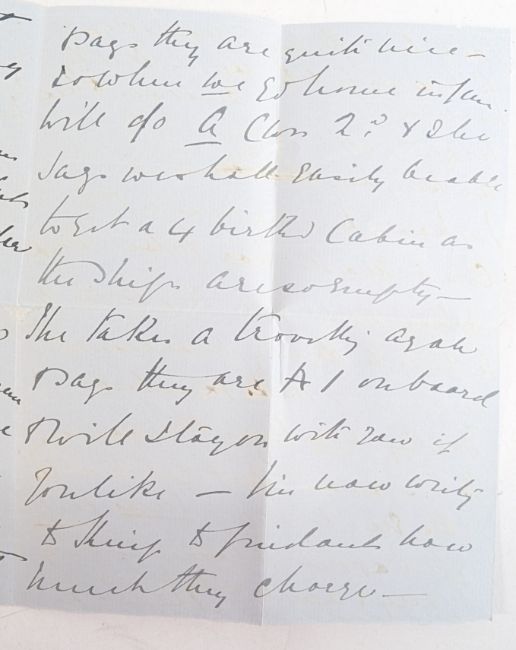 says they are quite nice –
So when we go home in Jan.
will do A Class 2d & she
says we shall easily be able
to get a 4 birthd Cabin as
the ships are so empty –
She takes a travelling ayah
& says they are A 1 onboard
& will stay on with you if
you like – I'm now writing
to King to find out how
much they charge –